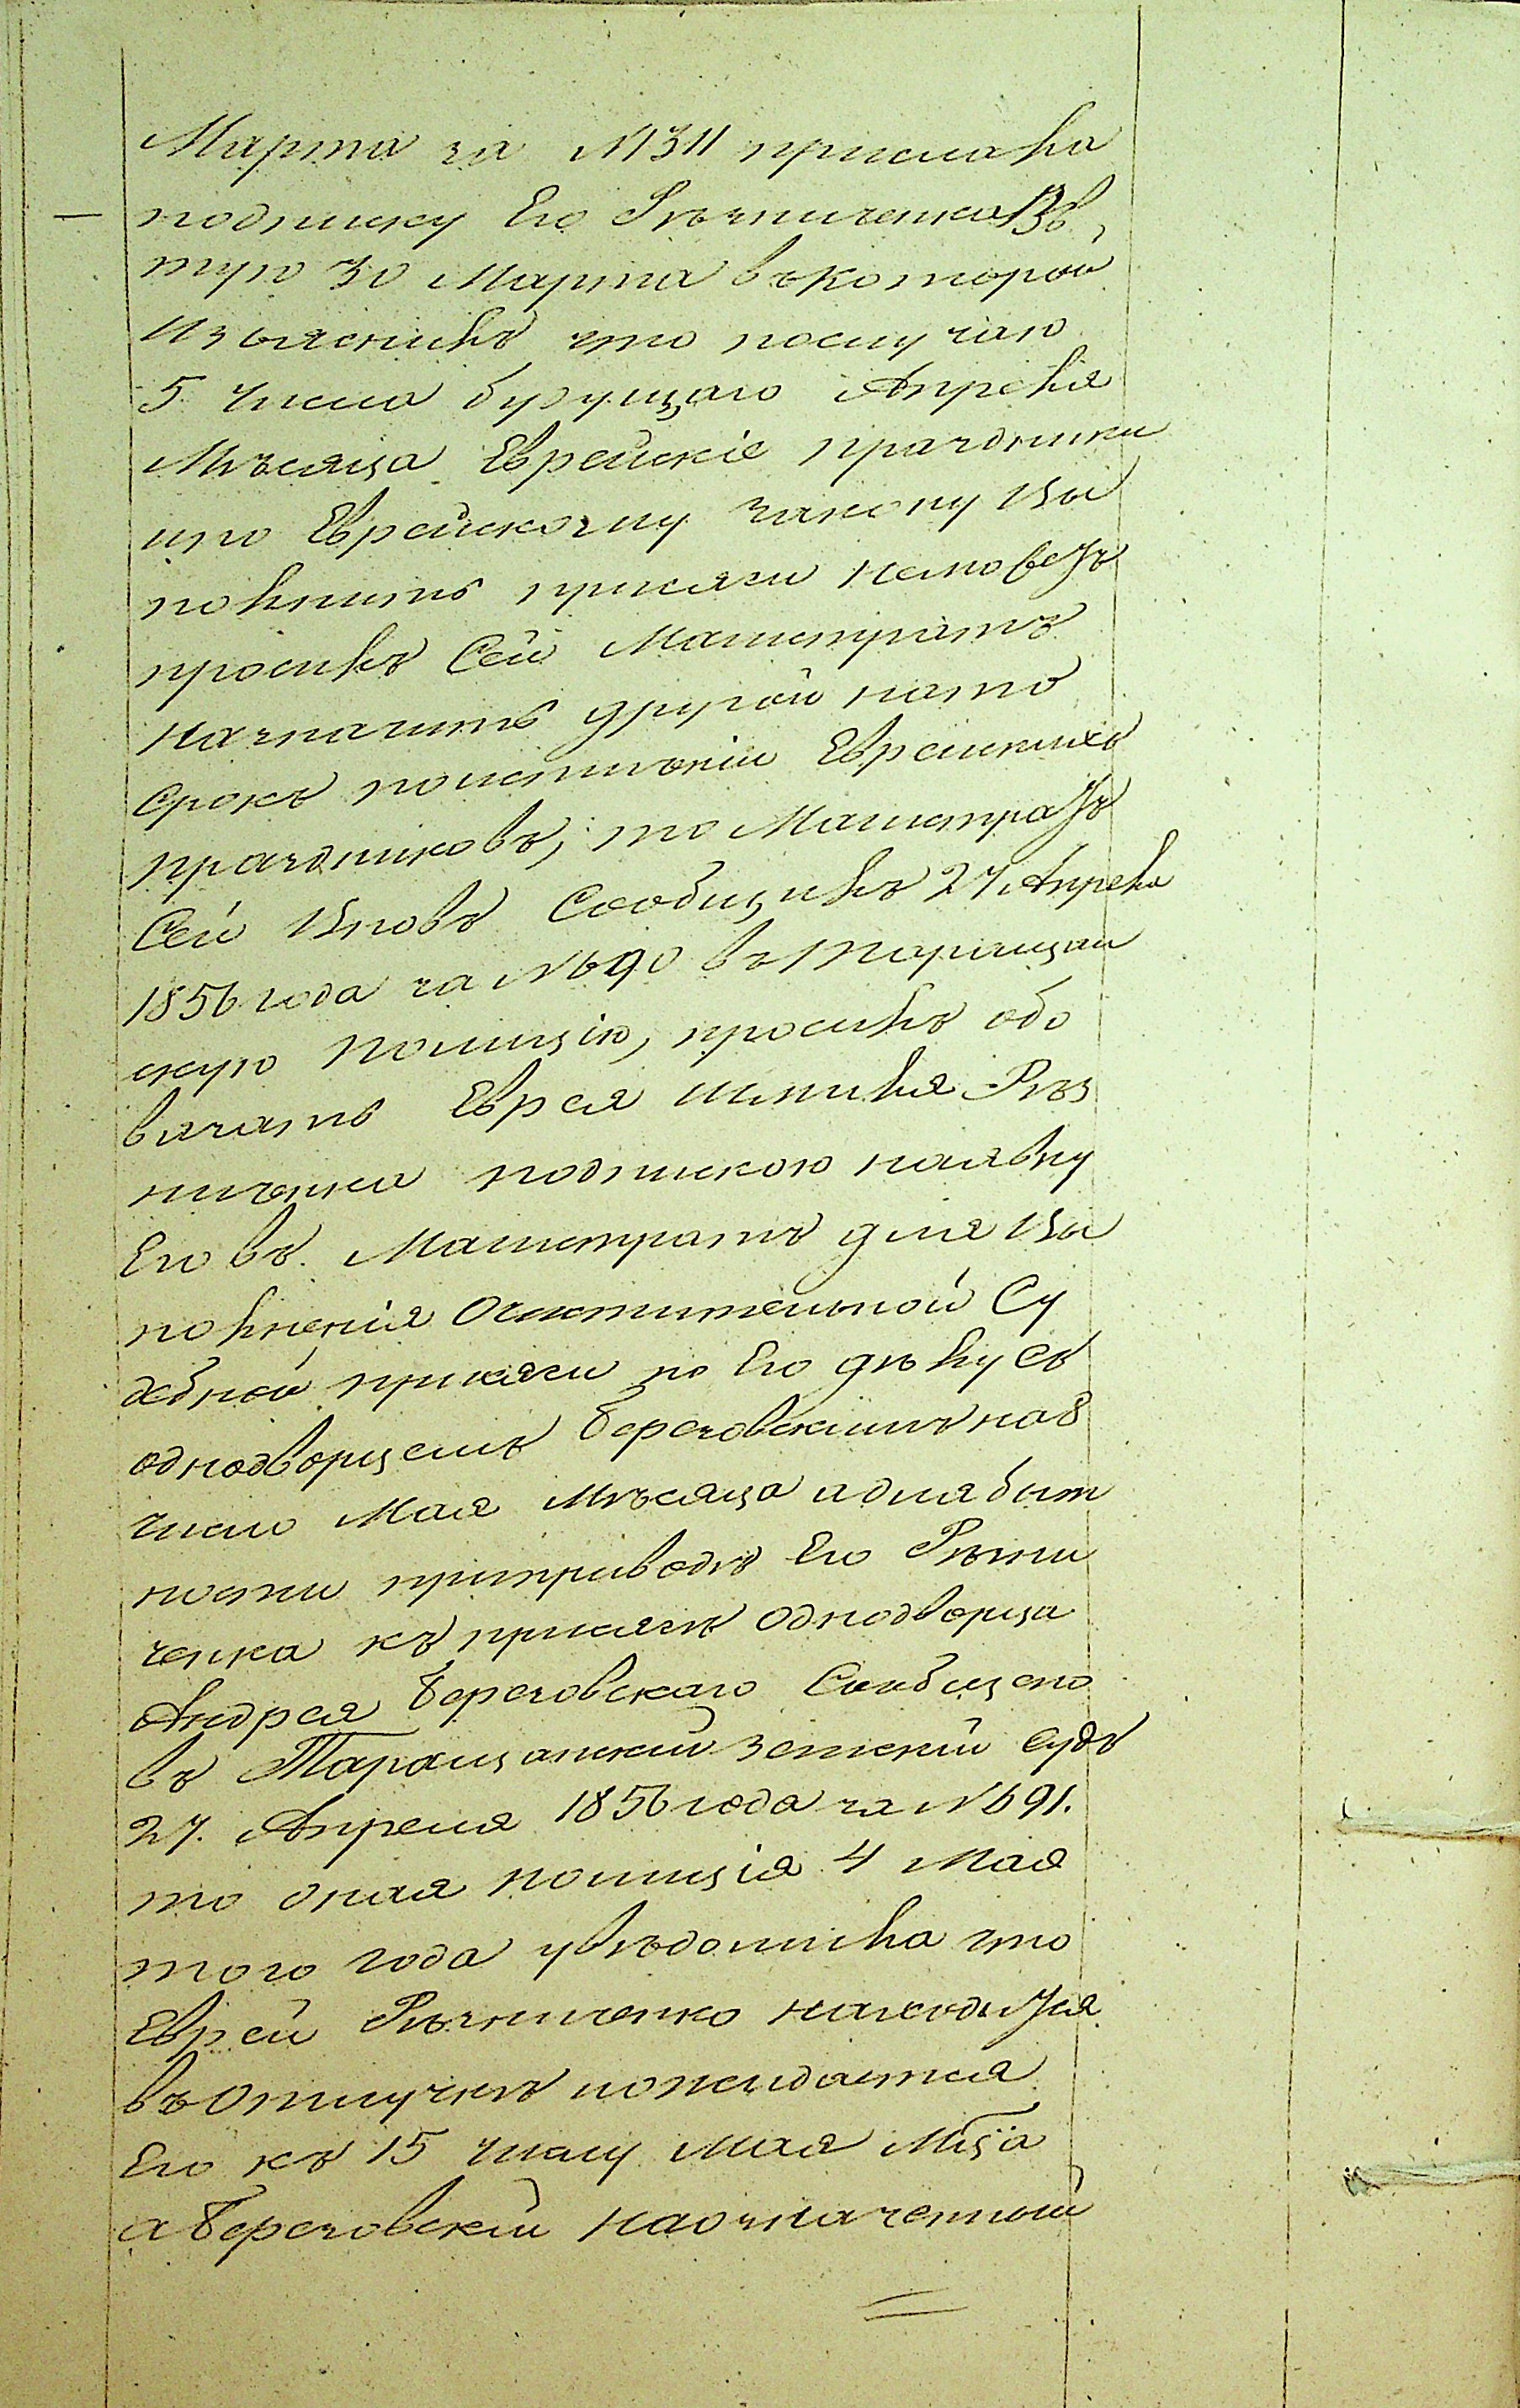 Марта за №1311 прислала
подписку Его Рѣзниченка Взя
тую 30 Марта въ которой
Изъяснилъ что послучаю
5 числа будущаго Апреля
Мѣсяца Еврейскіе праздники
ипо Еврейскому закону вы
полнить присяги неможетъ
просилъ Сей Магистратъ
назначить другой нато
срокъ поистиченіи Еврейскихъ
праздниковъ; то Магистратъ
Сей вновь Сообщилъ 27 Апреля
1856 года за №690 въ Таращан
скую полицію, просилъ обо
вязать Еврея Шмиля Рѣз
ниченка подпискою наявку
Его въ Магистратъ для вы
полненія Очистительной Су
дебной присяги по Его дѣлу съ
однодворцемъ Березовскимъ на 8
число Мая Мѣсяца адлябыт
ности припреводѣ Его Рѣзни
ченка къ присягѣ Однодворца
Андрея Березовскаго Сообщено
въ Таращанскій земскій судъ
27. Апреля 1856 года за №691.
то оная полиція 4 Мая
того года увѣдомила что
Еврей Рѣзниченко находится
въ Отлучкѣ иожидается
Его къ 15 числу Мая Мца
а Березовскій наозначенный